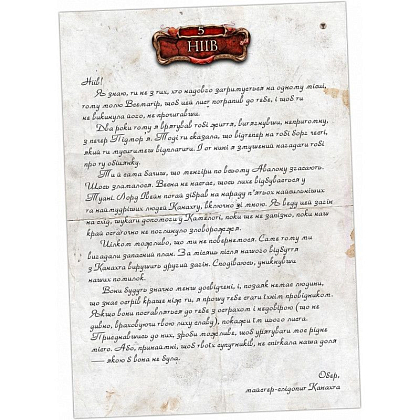 5
НІІВ
Ніів!
Я знаю, ти не з тих, хто надовго затримується на одному місці,
тому молю Всематір, щоб цей лист потрапив до тебе, і щоб ти
не викинула його, не прочитавши.
Два роки тому я врятував тобі життя, витягнувши, непритомну,
з печер Підмор'я. Тоді ти сказала, що відтепер на тобі борг честі,
який ти мусиш відплатити. І от нині я змушений нагадати тобі
про ту обіцянку.
Ти й сама бачиш, що менгіри по всьому Авалону згасають.
Щось зламалося. Весна не настає, щось лихе відбувається у
Туані. Лорд Івейн погав зібрав на нараду п'ятьох найсильніших
та наймудріших людей Канахту, включно зі мною. Я веду цей загін
на схід, шукати допомоги у Камелоті, поки ще не запізно, поки наш
край остаточно не поглинуло зловорожжя.
Цілком можливо, що ми не повернемося. Саме тому ми
вигадали запасний план. За місяць після нашого відбуття
з Канахта вирушить другий загін. Сподіваюсь, уникнувши
наших помилок.
Вони будуть значно менш досвідчені, і, позаяк немає людини,
що знає острів краще ніж ти, я прошу тебе стати їхнім провідником.
Якщо вони поставляться до тебе з острахом і недовірою (що не
дивно, враховуючи твою лиху славу), покажи їм цього листа.
Приєднавшись до них, зроби можливе, щоб урятувати моє рідне
місто. Або, принаймні, щоб твоїх супутників, не спіткала наша доля
— якою б вона не була.
Обер,
майстер-слідопит Канахта